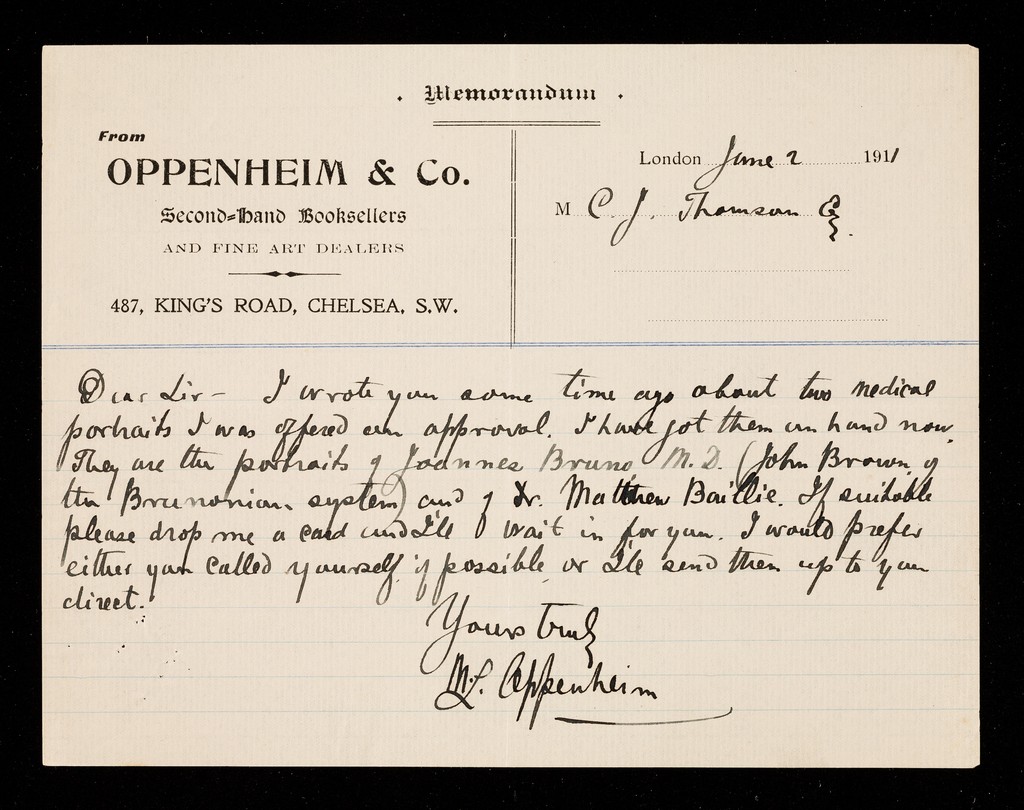 . Memorandum .
From
OPPENHEIM & Co.
Second-Hand Booksellers
AND FINE ART DEALERS
487, KING'S ROAD, CHELSEA, S.W.
London June 2 1911
M C. J. Thomson Esq.
Dear Sir - I wrote you some time ago about two medical
portraits I was offered on approval. I have got them on hand now.
They are the portraits of Joannes Bruno, M.D. (John Brown of
the Brunonian system) and of Dr. Matthew Baillie. If suitable
please drop me a card and I'le wait in for you. I would prefer
either you called yourself if possible or I'le send them up to you
direct.
Yours truly
M. L. Oppenheim